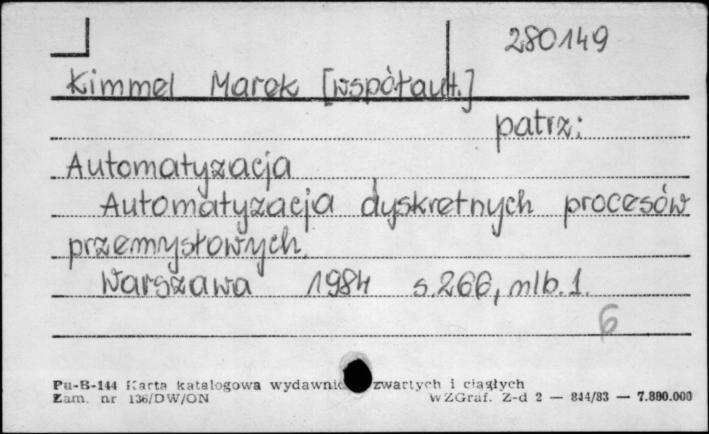 280149
Kimmel Marek [współaut.]
patrz:
Automatyzacja
Automatyzacja dyskretnych procesów
przemysłowych.
Warszawa 1984 s.266, nlb.1
6
Pu-B-144 Karta katalogowa wydawnic zwartych i ciągłych
Zam. nr 136/DW/ON WZGraf. Z-d 2 — 844/83 — 7.800.000